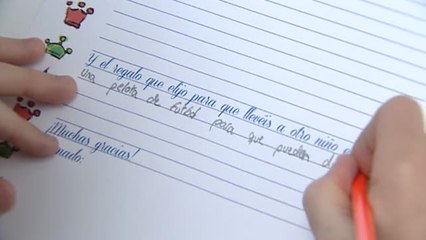 y el regalo que elijo para que llevéis a otro niño e
una pelota de futbol para que puedan
¡Muchas gracias!
mado: